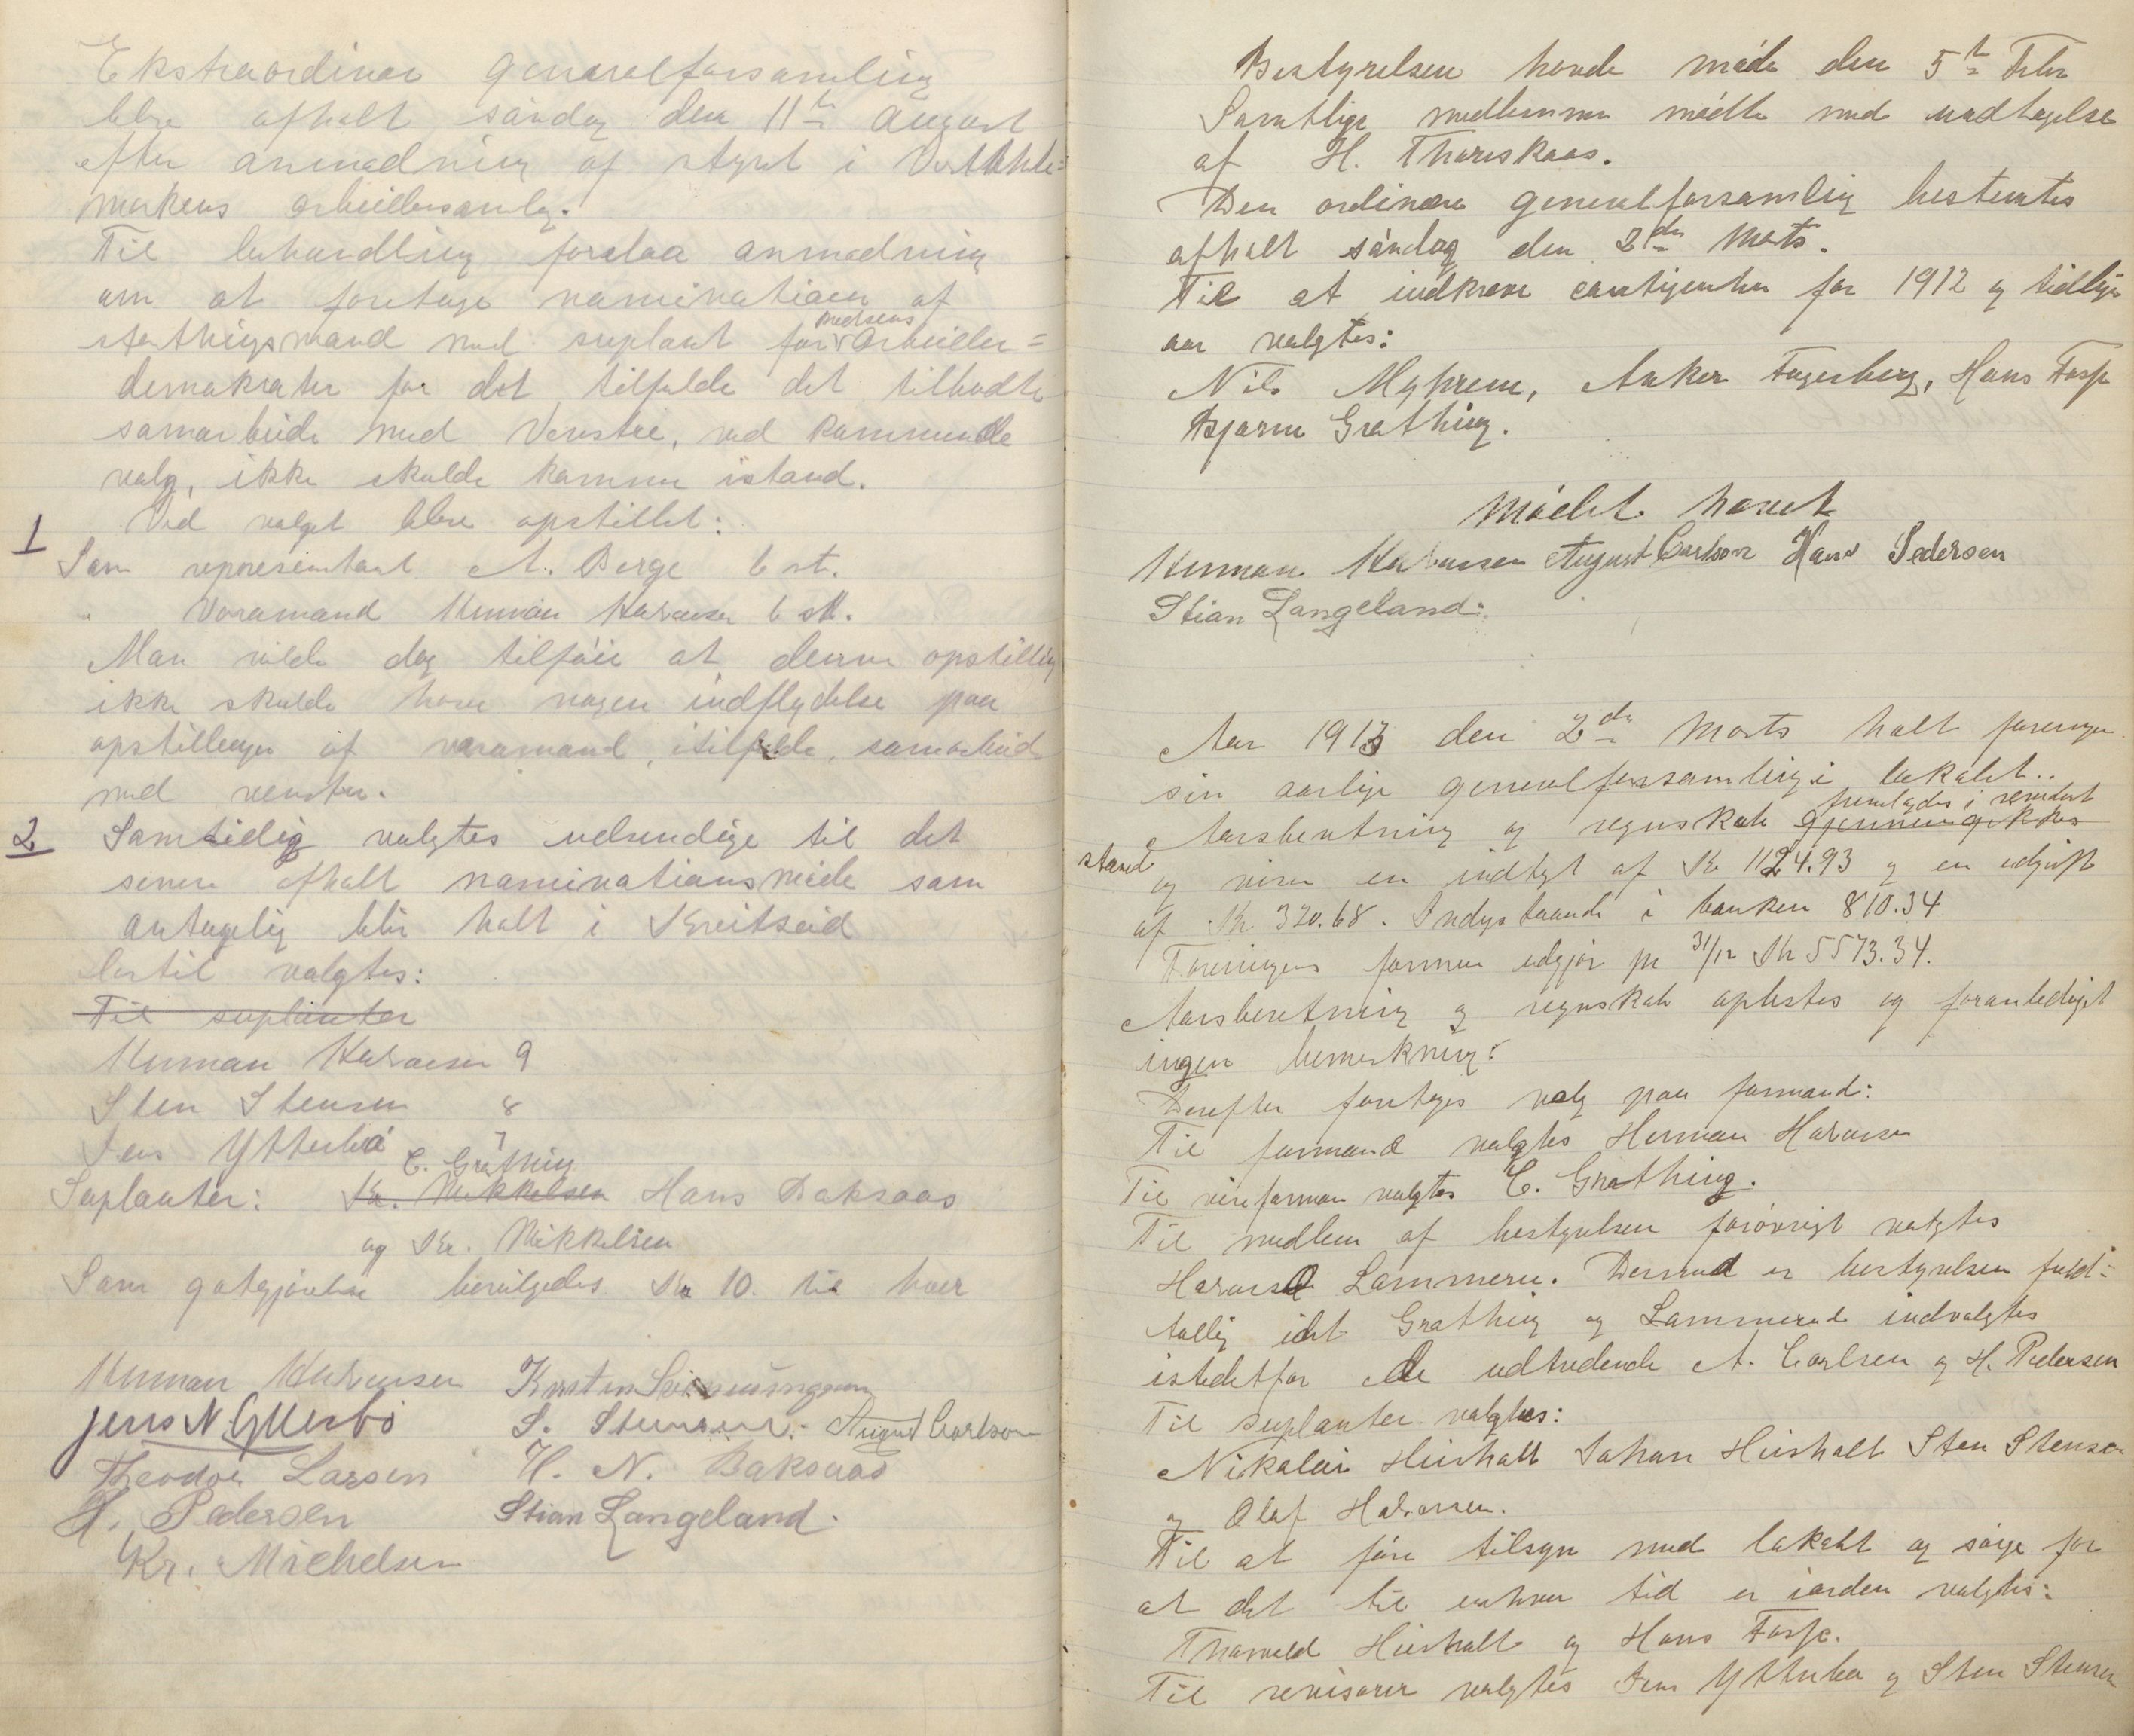 Ekstraordinær generalforsamling
blev afholt søndag den 11te August
efter anmodning af styret i Vesttele=
markens arbeidersamlag.
Til behandling forelaa anmodning
om at foretage nominationen af
stortingsmand med suplant for medsens arbeider=
demokrater for det tilfælde det tilbudte
samarbeide med Venstre, ved kommende
valg, ikke skulde komme istand.
1 Ved valget blev opstillet:
Som representant A. Berge 6 st.
" Varamand Herman Halvorsen 6 st.
Man vilde dog tilføie at denne opstilling
ikke skulde have nogen indflydelse paa
opstillingen af varamand, itilfælde, samarbeid
med venstre.
2 Samtidig valgtes udsendige til det
senere afholt nominationsmøde som
antagelig blir holt i Kviteseid
hertil valgtes:
Til suplanter
Herman Halvorsen 9
Sten Stensen 8
Jens Ytterbø 7
Suplanter: Kr. Mikkelsen C. Gråthing Hans Baksaas
og Kr. Mikkelsen
Som gotgjørelse bevilgedes Kr 10. til hver
Herman Halvorsen Kristen
Jens N. Ytterbø S. Stensen August Carlson
Theodor Larsen H. N. Baksaas
H. Pedersen Stian Langeland.
Kr. Michelsen
Bestyrelsen havde møde den 5te Febr
Samtlige medlemmer mødte med undtagelse
af H. Thorsskaas.
Den ordinære generalforsamling bestemtes
afholt søndag den 2den Marts.
Til at indkræve contigenten for 1912 og tidligere
aar valgtes:
Nils Myhrene, Anker Fagerberg, Hans Fosse
Bjarne Grathing.
Mødet hævet
Herman Halvorsen August Carlson Hans Pedersen
Stian Langeland.
Aar 1913 den 2den Marts holt foreningen
sin aarlige generalforsamling i lokalet..
Aarsberetning og regnskab gjennemgikkes fremlagdes i revidert
stand og viser en indtegt af Kr 1124.93 og en udgift
af Kr. 320.68. Indestaaende i banken 810.34
Foreningens formue udgjør pr 31/12 Kr 5573.34.
Aarsberetning og regnskab oplæstes og foranlediget
ingen bemerkning:
Derefter foretoges valg paa formand:
Til formand valgtes Herman Halvorsen
Til viseforman valgtes C. Grathing.
Til medlem af bestyrelsen forøvrigt valgtes
Halvorsd Lammeru. Dermed er bestyrelsen fuld=
tallig idet Grathing og Lammerud indvalgtes
istedetfor de udtredende A. Carlsen og H. Pedersen
Til suplanter valgtes:
Nikolai Hiisholt Johan Hiisholt Sten Stensen
og Olaf Halvorsen.
Til at føre tilsyn med lokalet og sørge for
at det til enhver tid er iorden valgtes:
Thorvald Hiisholt og Hans Fosse.
Til revisorer valgtes Jens Ytterbø og Sten Stensen